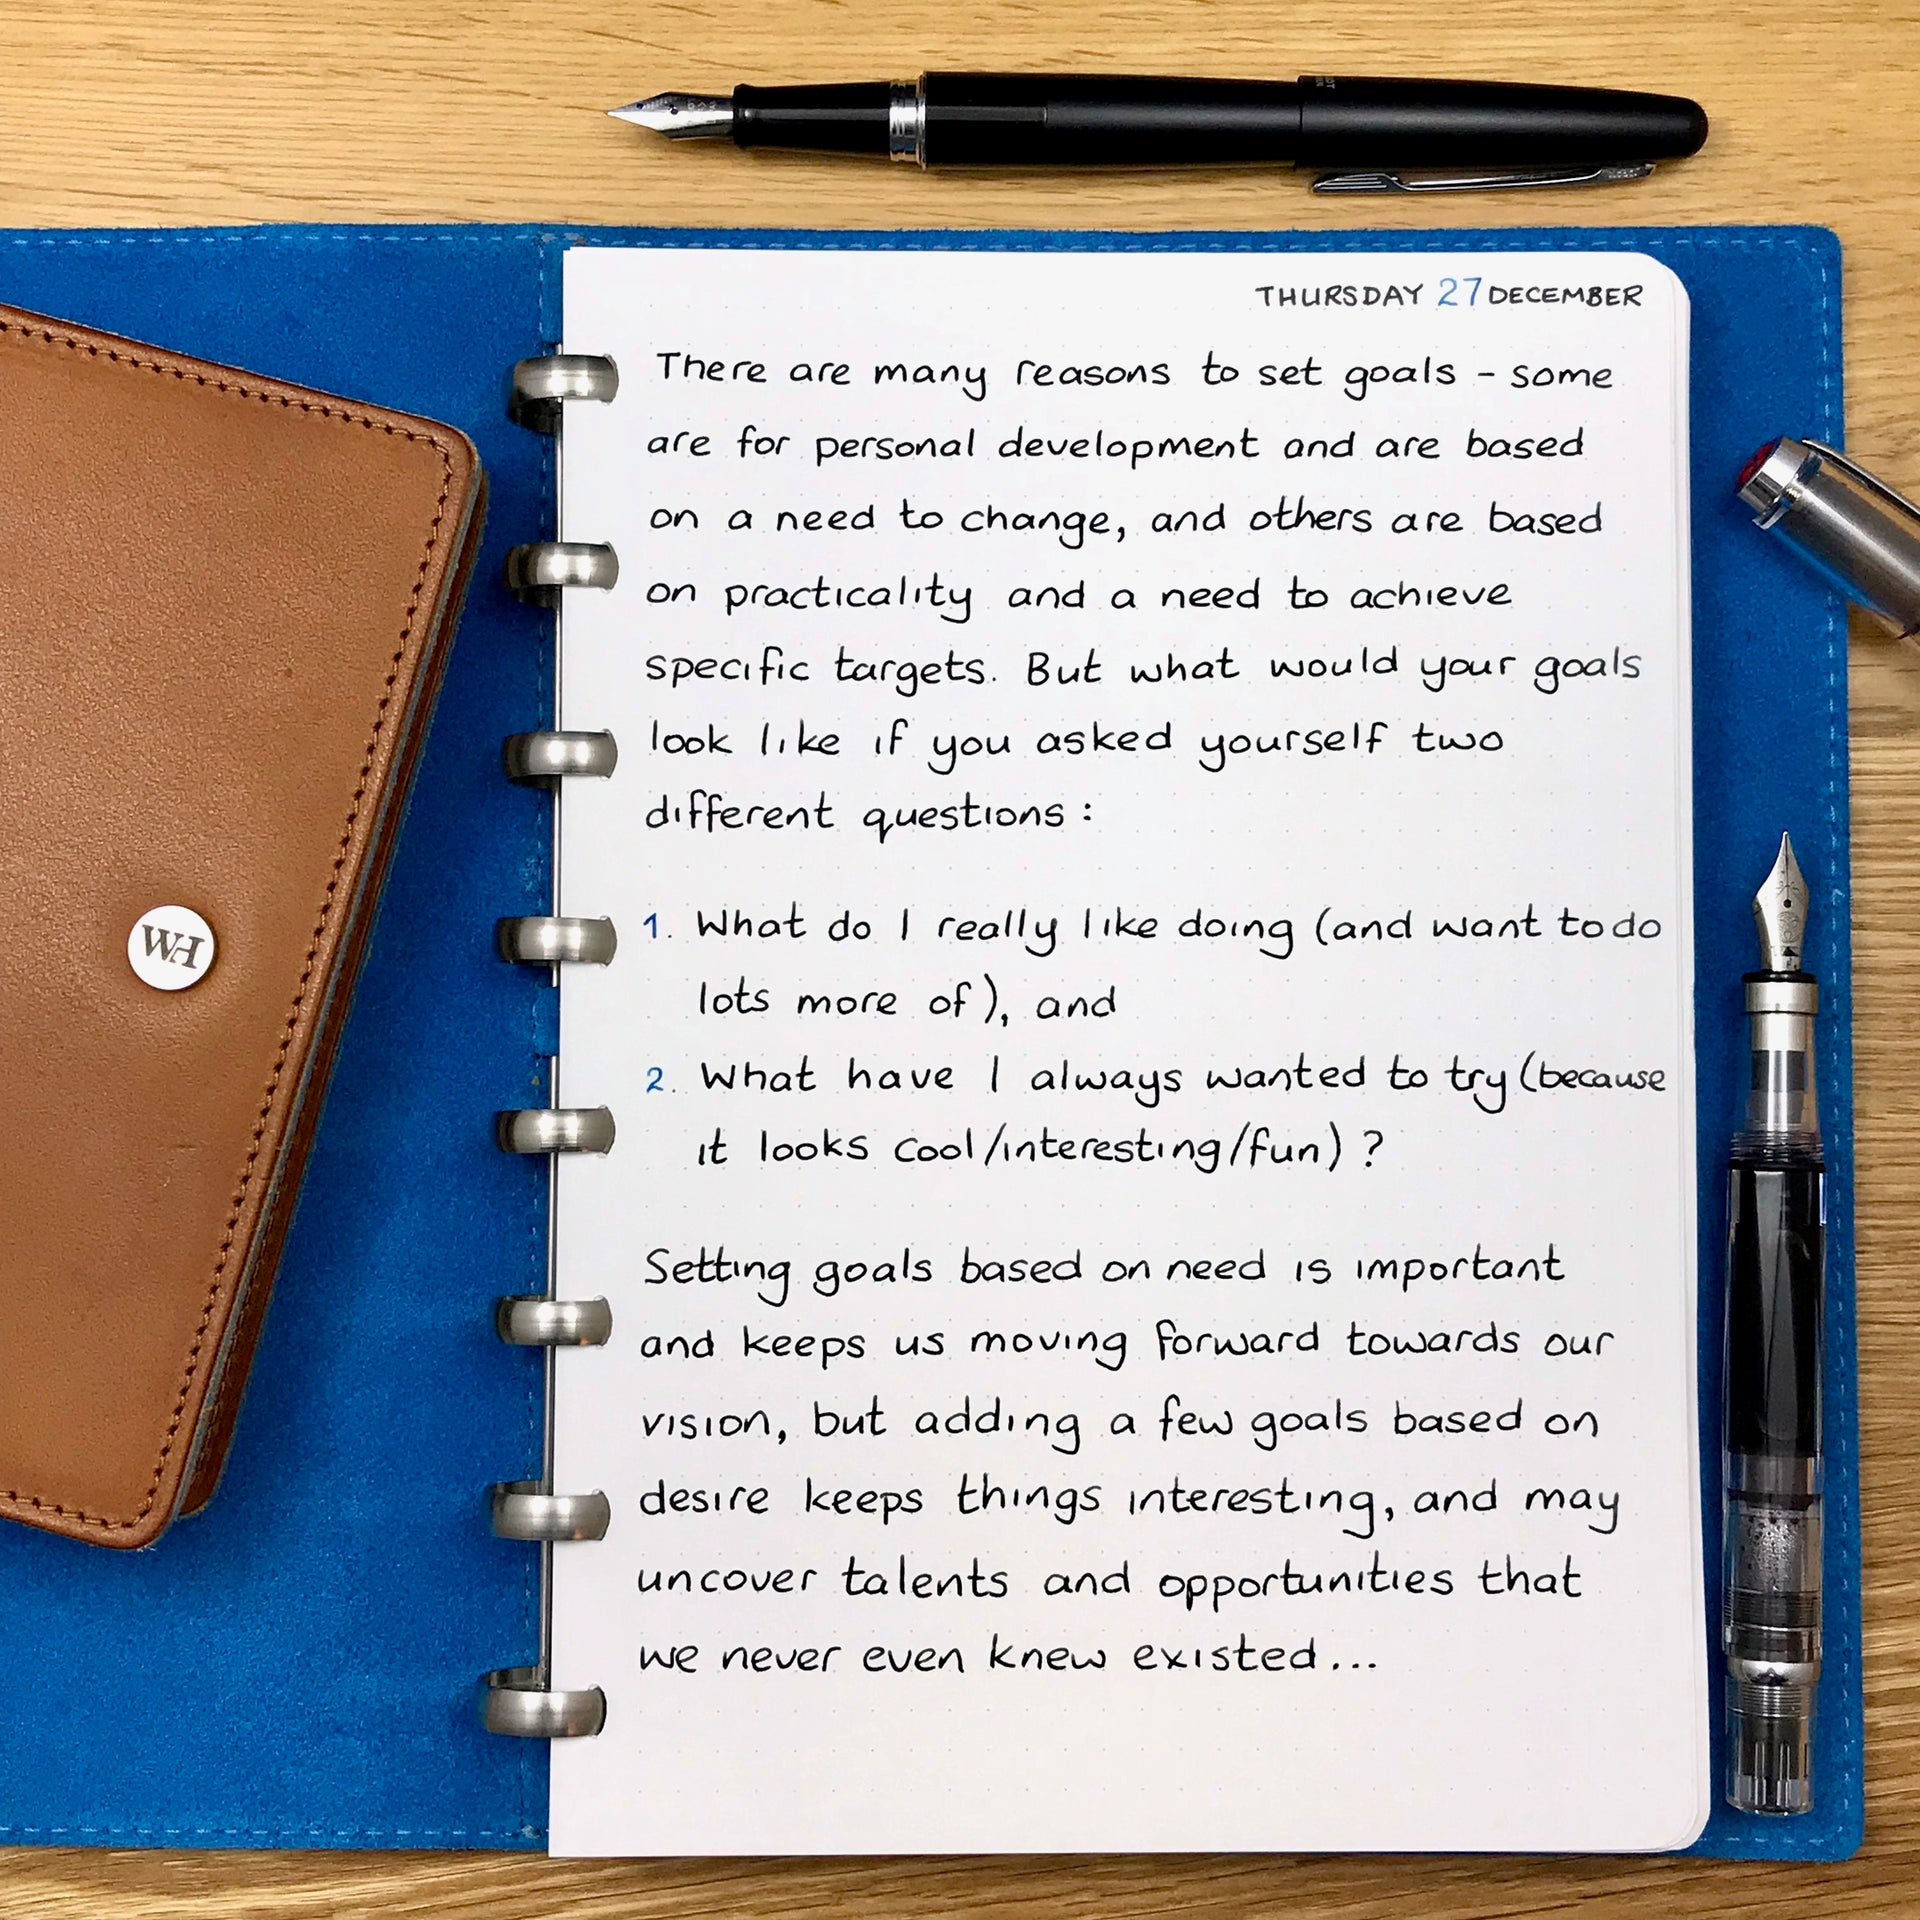 THURSDAY 27 DECEMBER
There are many reasons to set goals - some
are for personal development and are based
on a need to change, and others are based
on practicality and a need to achieve
specific targets. But what would your goals
look like if you asked yourself two
different questions:
1. What do I really like doing (and want to do
lots more of), and
2. What have I always wanted to try (because
it looks cool/interesting/fun)?
Setting goals based on need is important
and keeps us moving forward towards our
vision, but adding a few goals based on
desire keeps things interesting, and may
uncover talents and opportunities that
we never even knew existed...
WH